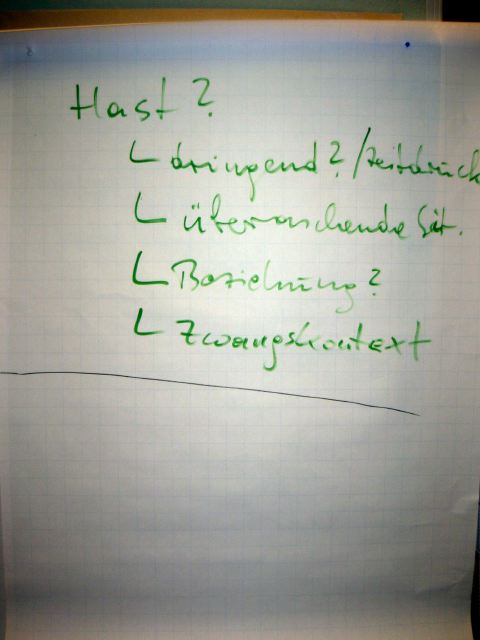 Hast?
dringend?/Zeitdruck
überraschende Sit.
Beziehung?
Zwangskontext